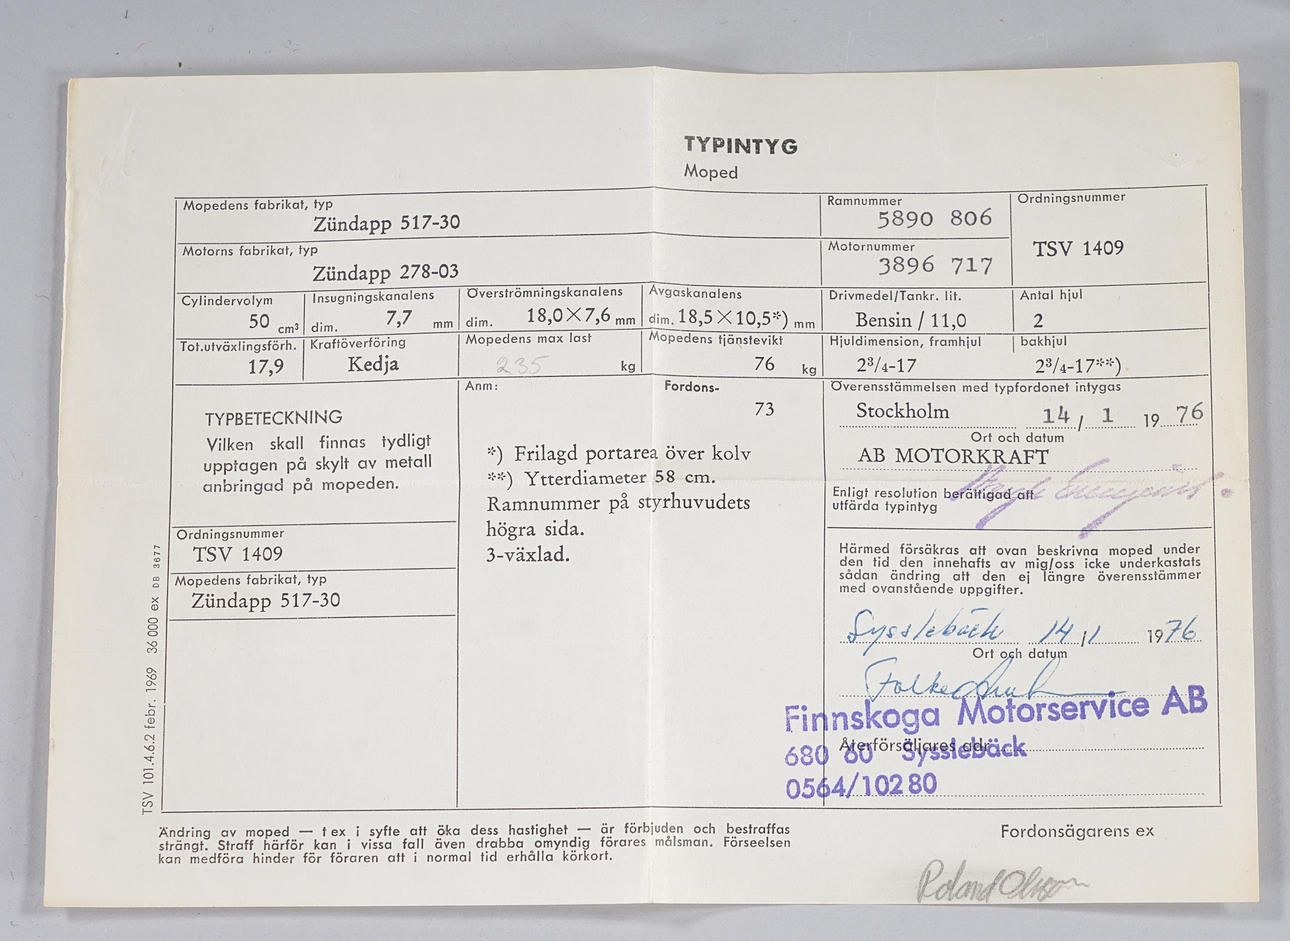 TYPINTYG
Moped
Mopedens fabrikat, typ
Zündapp 517-30
Ramnummer
5890 806
Ordningsnummer
TSV 1409
Motorns fabrikat, typ
Zündapp 278-03
Motornummer
3896 717
Cylindervolym
50 cm³
Insugningskanalens
dim. 7,7 mm
Överströmningskanalens
dim. 18,0×7,6 mm
Avgaskanalens
dim. 18,5×10,5*) mm
Drivmedel/Tankr. lit.
Bensin / 11,0
Antal hjul
2
Tot.utväxlingsförh.
17,9
Kraftöverföring
Kedja
Mopedens max last
235 kg
Mopedens tjänstevikt
76 kg
Hjuldimension, framhjul
2³/₄-17
bakhjul
2³/₄-17**)
TYPBETECKNING
Vilken skall finnas tydligt
upptagen på skylt av metall
anbringad på mopeden.
Ordningsnummer
TSV 1409
Mopedens fabrikat, typ
Zündapp 517-30
Anm:
Fordons-
73
*) Frilagd portarea över kolv
**) Ytterdiameter 58 cm.
Ramnummer på styrhuvudets
högra sida.
3-växlad.
Överensstämmelsen med typfordonet intygas
Stockholm 14/1 1976
Ort och datum
AB MOTORKRAFT
Enligt resolution berättigad att
utfärda typintyg
Härmed försäkras att ovan beskrivna moped under
den tid den innehafts av mig/oss icke underkastats
sådan ändring att den ej längre överensstämmer
med ovanstående uppgifter.
Sysslebäck 14/1 1976
Ort och datum
Folke
Finnskoga Motorservice AB
Återförsäljares adr
680 60 Sysslebäck
0564/102 80
TSV 101.4.6.2 febr. 1969 36 000 ex DB 3677
Ändring av moped — t ex i syfte att öka dess hastighet — är förbjuden och bestraffas
strängt. Straff härför kan i vissa fall även drabba omyndig förares målsman. Förseelsen
kan medföra hinder för föraren att i normal tid erhålla körkort.
Fordonsägarens ex
Roland Olsson